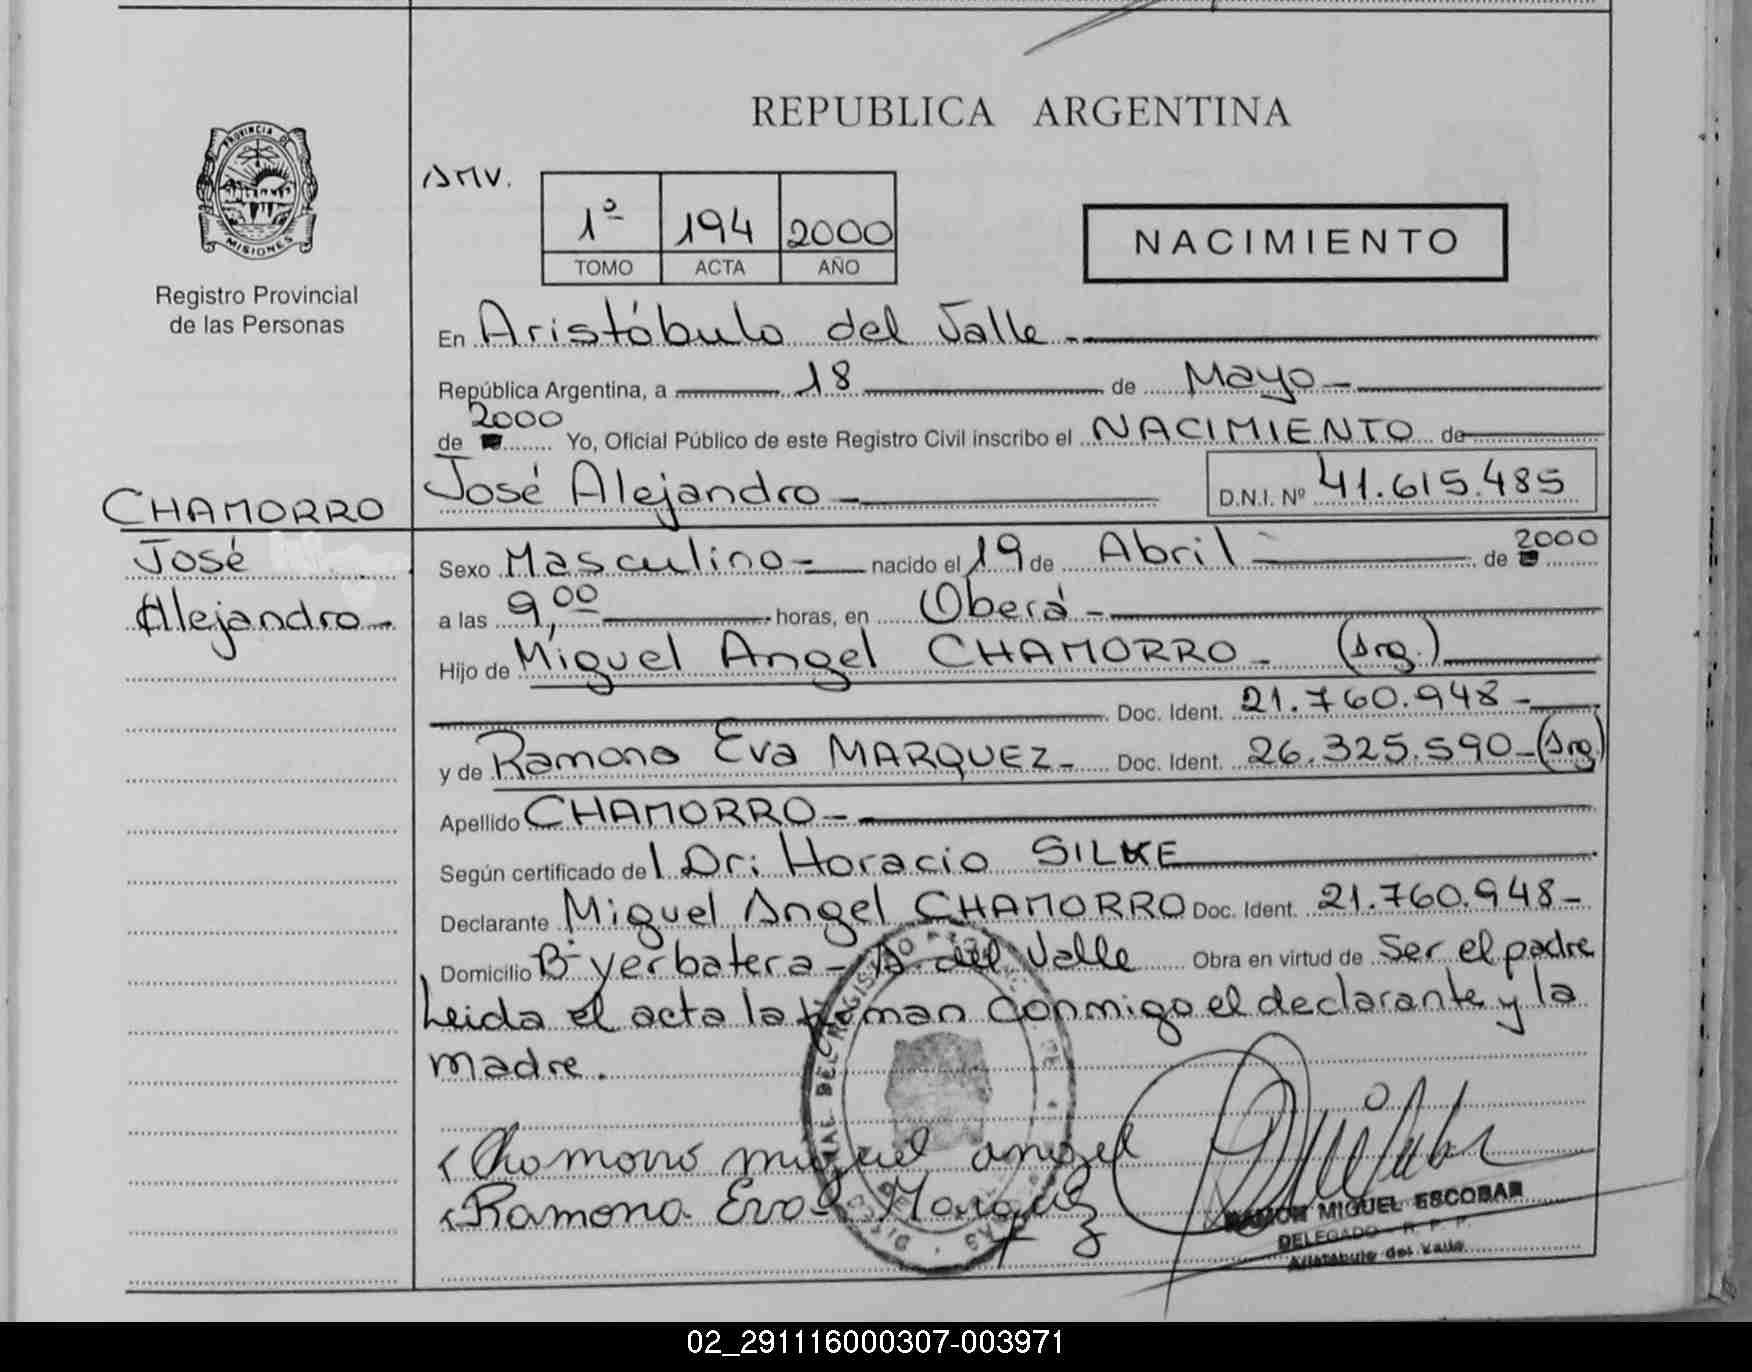 REPUBLICA ARGENTINA
PROVINCIA DE
MISIONES
Registro Provincial
de las Personas
AMV.
1º 194 2000
TOMO ACTA AÑO
NACIMIENTO
En Aristóbulo del Valle -
República Argentina, a 18 de Mayo -
2000
de Yo, Oficial Público de este Registro Civil inscribo el NACIMIENTO de
José Alejandro - D.N.I. Nº 41.615.485
CHAMORRO
José
Alejandro -
Sexo Masculino - nacido el 19 de Abril de 2000
a las 9,00 horas, en Oberá -
Hijo de Miguel Angel CHAMORRO - (Arg.)
Doc. Ident. 21.760.948 -
y de Ramona Eva MARQUEZ - Doc. Ident. 26.325.590 - (Arg)
Apellido CHAMORRO -
Según certificado del Dr: Horacio SILKE
Declarante Miguel Angel CHAMORRO Doc. Ident. 21.760.948 -
Domicilio Bº yerbatera - A. del Valle Obra en virtud de Ser el padre
Leida el acta la firman conmigo el declarante y la
madre.
Chamorro miguel angel
Ramona Eva Marquez
RAMON MIGUEL ESCOBAR
DELEGADO - R. P. P.
Aristóbulo del Valle
02_291116000307-003971